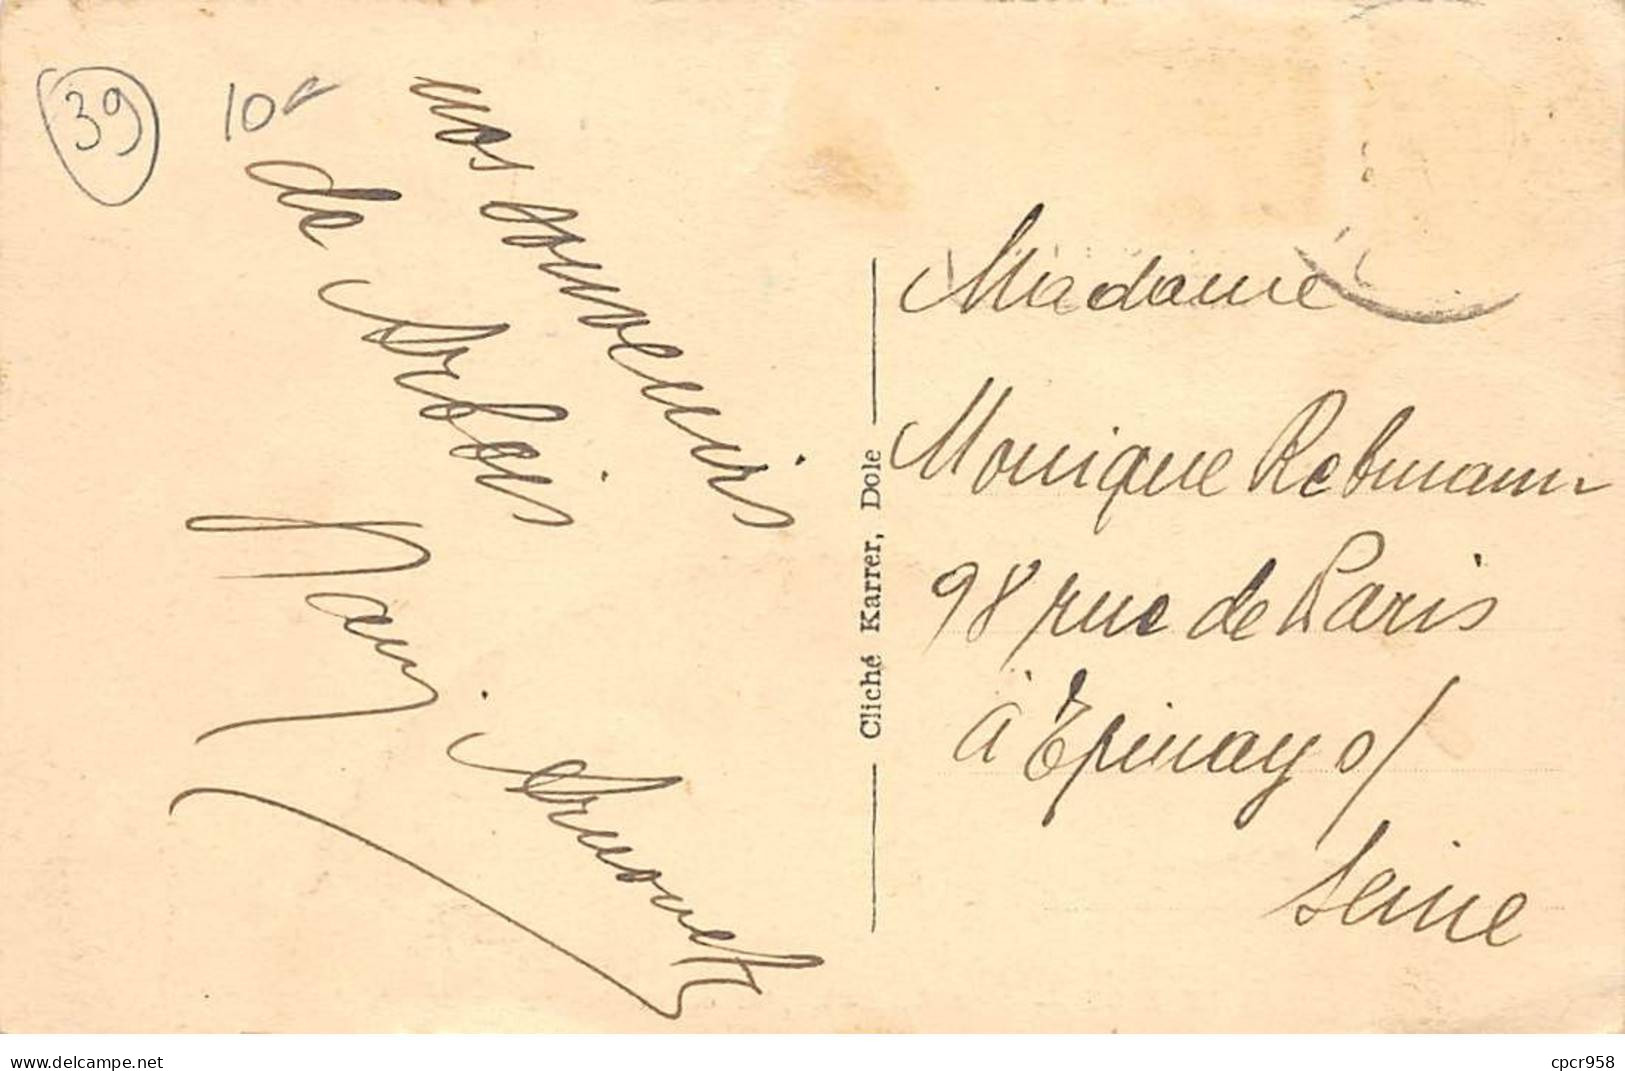 39
10
nos souvenirs
de Arbois
Cliché Karrer, Dole
Madame
Monique Rebmann
98 rue de Paris
à Epinay s/
Seine
www.delcampe.net
cpcr958